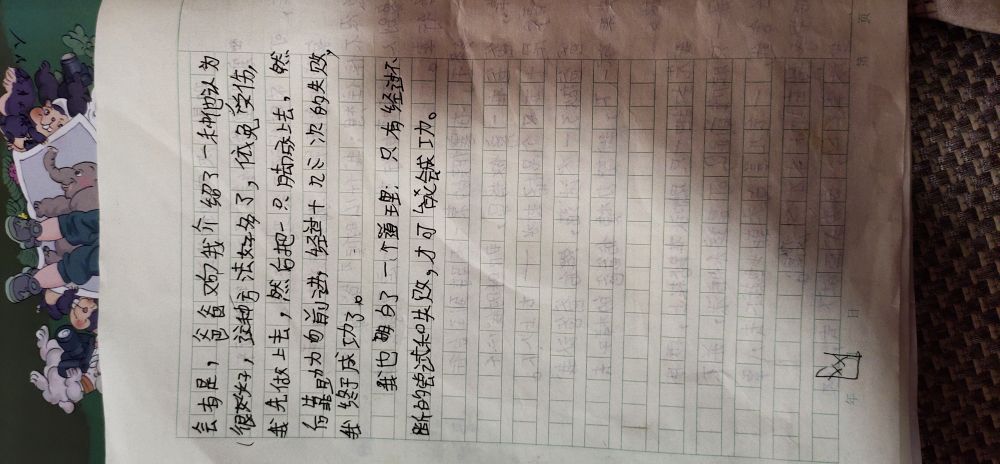 会有是，爸爸又向我介绍了一种他认为
(很好好，这种方法好多了，依免受伤，
我先做上去，然后把一只脚放上去，然
后靠助力向前进，经过十九三次的失败，
我终于成功了。
我也明白了一个道理：只有经过不
断的尝试和失败，才可能会成功。
年 日
第 页